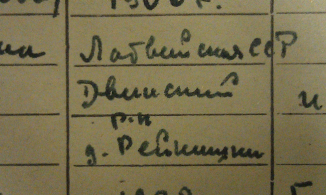 1900 г.
Латвийская ССР
Двинский
р-н
д. Рейницки
и